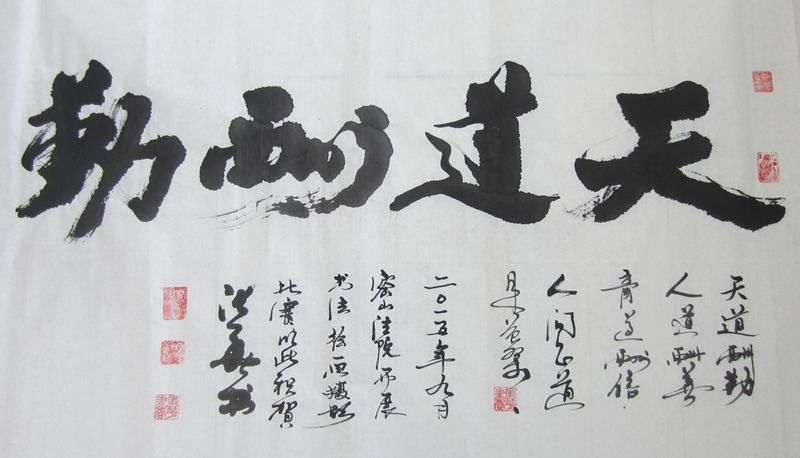 天道酬勤
天道酬勤
人道酬善
商道酬信
人间正道
是沧桑
二〇一五年九月
密山法院开展
书法绘画摄影
比赛以此祝贺